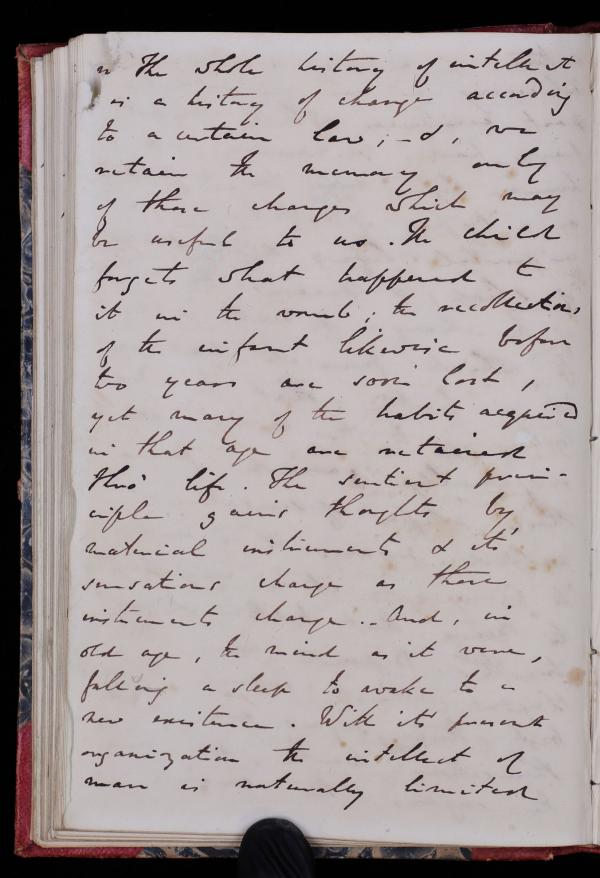 The whole history of intellect
is a history of change according
to a certain law; - & , we
retain the memory only
of those changes which may
be useful to us. The child
forgets what happened to
it in the womb; the recollections
of the infant likewise before
two years are soon lost,
yet many of the habits acquired
in that age are retained
thro' life. The sentient prin-
ciple gains thoughts by
material instruments & its'
sensations change as those
instruments change. - And, in
old age, the mind as it were,
falling a sleep to awake to a
new existence. With its' present
organization the intellect of
man is naturally limited